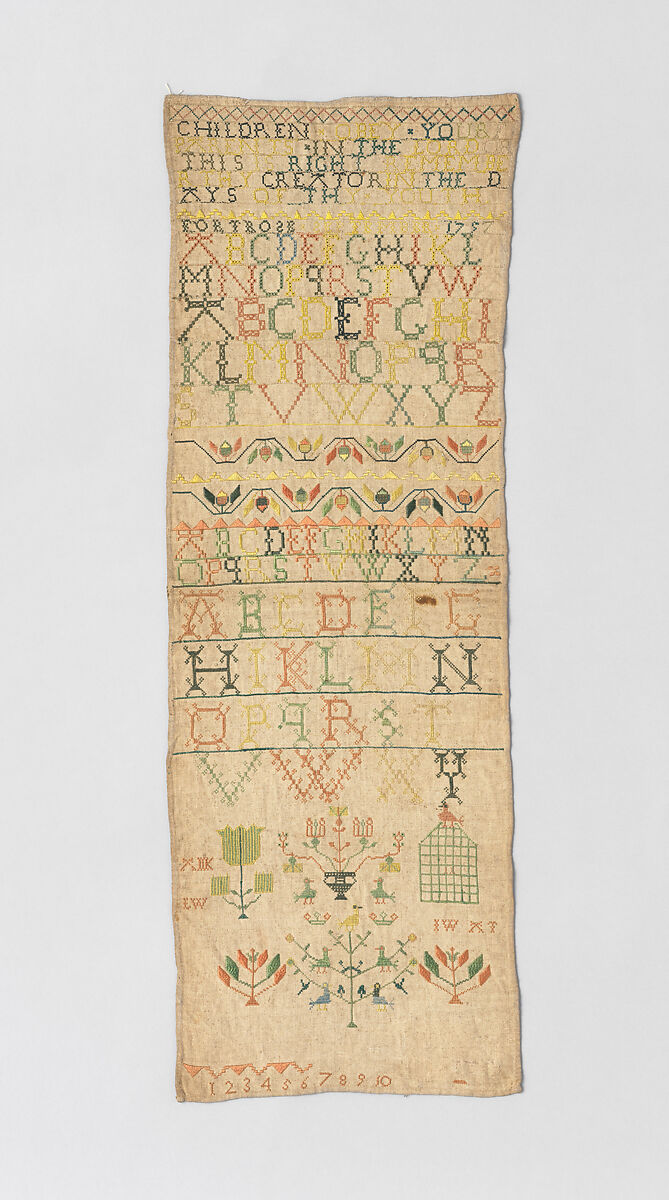 CHILDREN OBEY YOUR
PARENTS IN THE LORD
THIS IS RIGHT REMEMB
CREATOR IN THE D
AYS OF THY YOUTH
FORTROSE 1757
ABCDEFGHIKL
MNOPqRSTVW
ABCDEFGHI
KLMNOPqR
STVWXYZ
ABCDEFGHIKLMN
OPqRSTVWXYZ
ABCDEFG
HIKLMN
OPqRST
VWXY
IW
IW AT
1 2 3 4 5 6 7 8 9 10